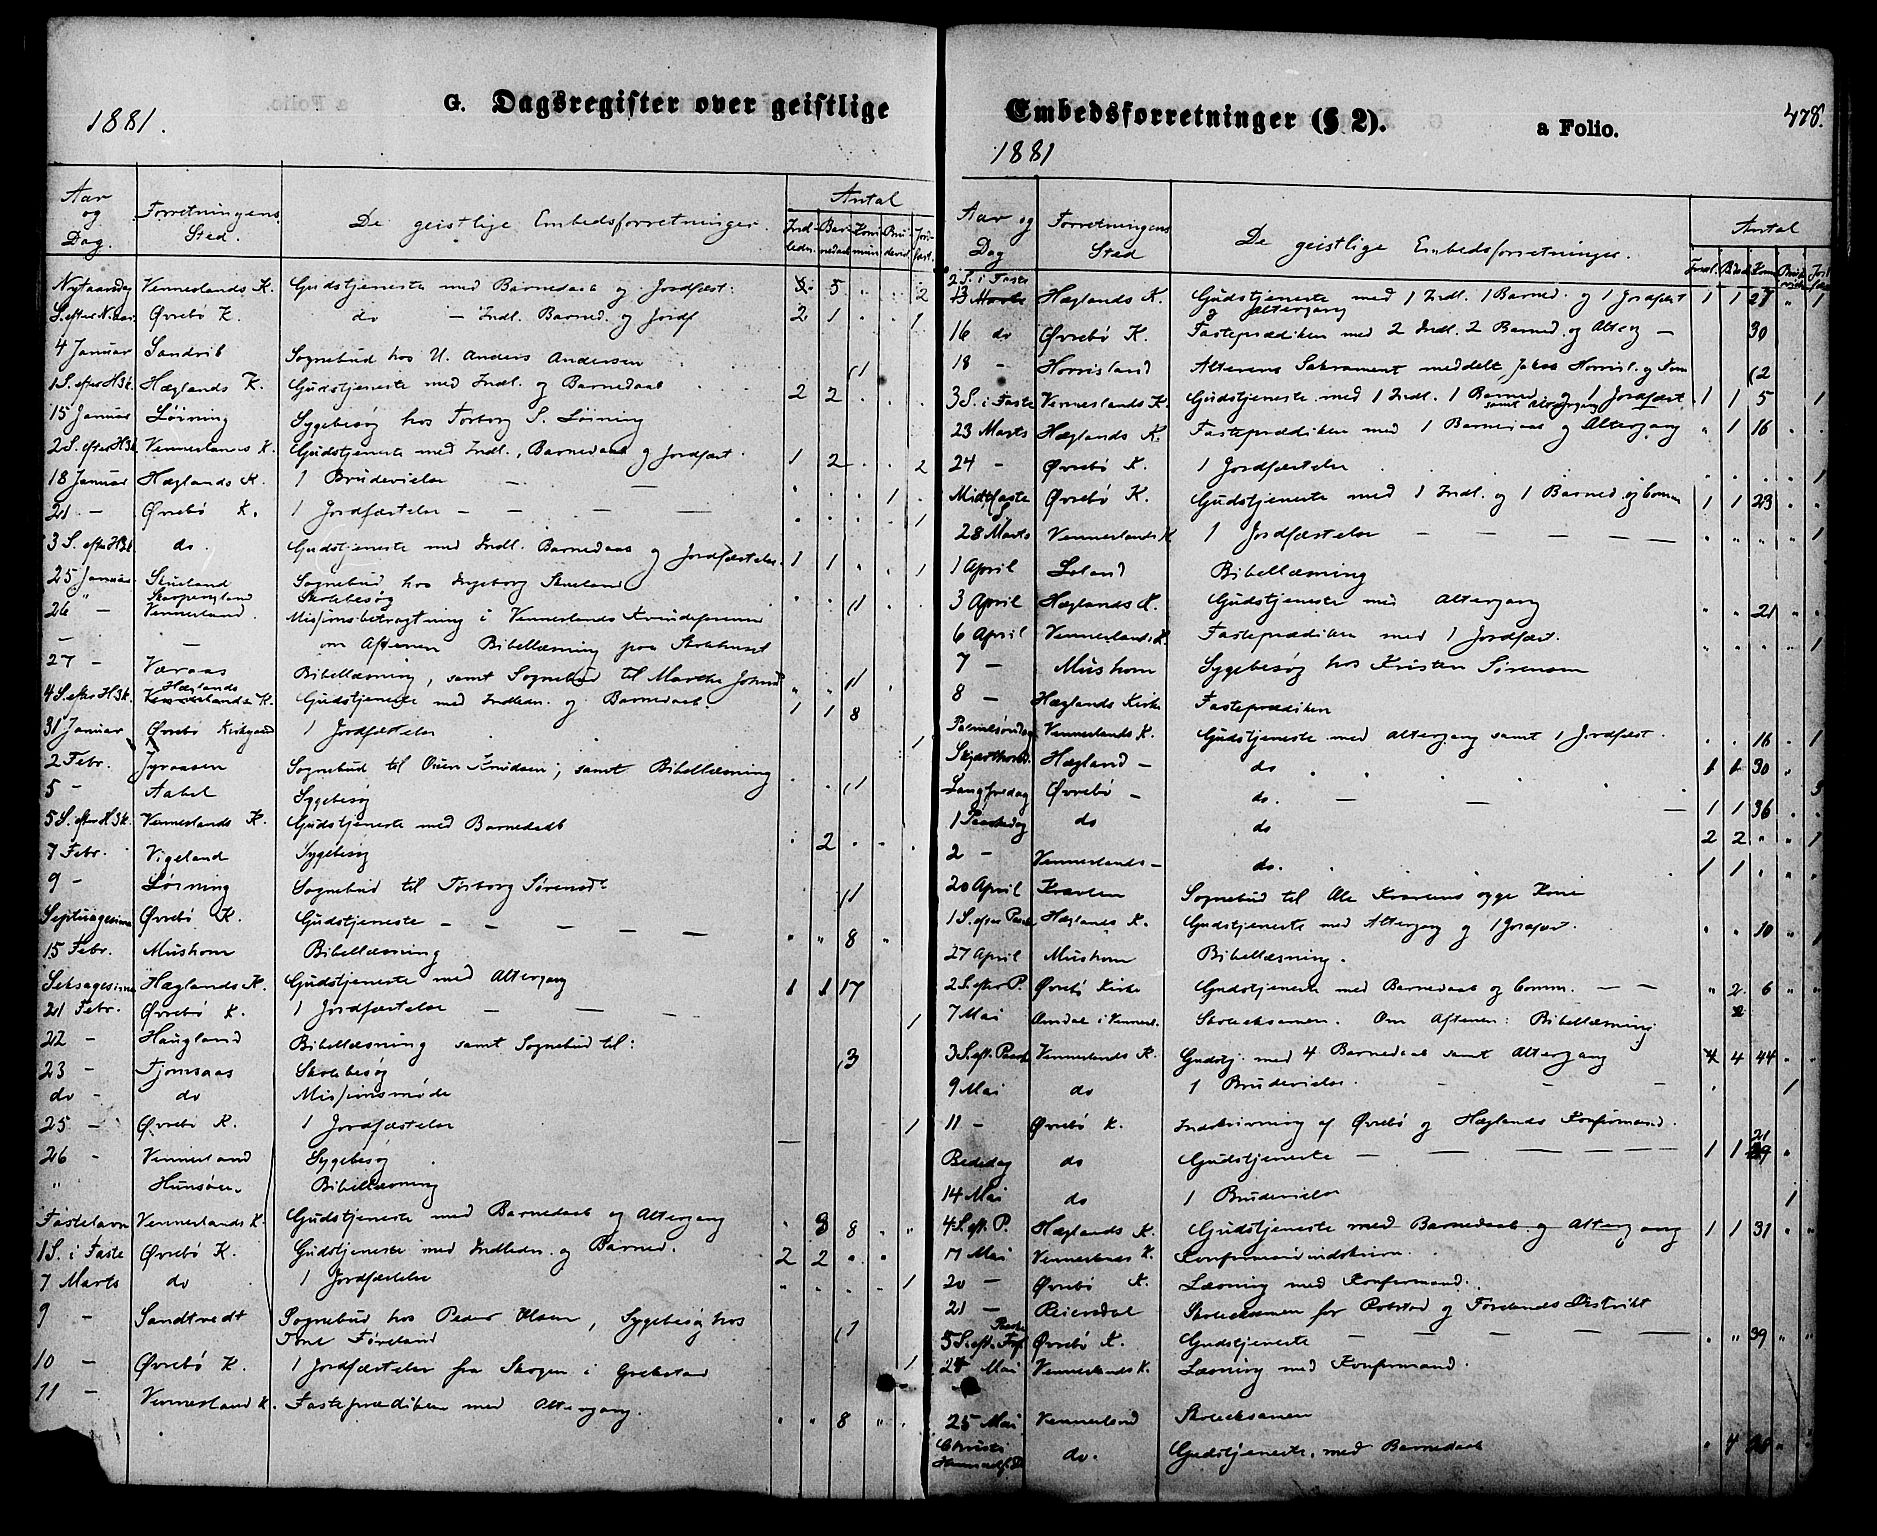 1881.
G. Dagsregister over geistlige
Aar og Dag. Forretningens Sted. De geistlige Embedsforretninger. Antal
Indledn. Barnedaab Kommun. Brudevid. Jordfæst.
Nytaarsdag Vennerlands K. Gudstjeneste med Barnedaab og Jordfæst: 5 2
S. efter Nytaar Øvrebø K. do – Indl. Barned. og Jordf 2 1 1
4 Januar Sandrib Sognebud hos U. Anders Andersen (1
1 S. efter H3k. Hæglands K. Gudstjeneste med Indl. og Barnedaab 2 2
15 Januar Løirning Sygebesøg hos Torborg S. Løirning
2 S. efter H3k. Vennerlands K. Gudstjeneste med Indl., Barnedaab og Jordfæst. 1 2 2
18 Januar Hæglands K. 1 Brudevielse – 1
21 – Øvrebø K. 1 Jordfæstelse – – – 1
3 S. efter H3k do. Gudstjeneste med Indl. Barnedaab og Jordfæstelse. 1 1 1
25 Januar Skueland Sognebud hos Ingeborg Skueland (1
" Skarpengland Skolebesøg
26 – Vennerland. Missionsbetragtning i Vennerlands Kvindeforening
– – om Aftenen Bibellæsning paa Skolehuset
27 – Væraas Bibellæsning, samt Sognebud til Marthe (1
4 S. efter H3k. Hæglands K. Gudstjeneste med Indledn. og Barnedaab. 1 1 8
31 Januar Øvrebø Kirkegaard 1 Jordfæstelse 1
2 Febr. Jyraasen Sognebud til Knudsen, samt Bibellæsning (1
5 – Aabel Sygebesøg
5 S. efter H3k. Vennerlands K. Gudstjeneste med Barnedaab 2
7 Febr. Vigeland Sygebesøg
9 – Løirning Sognebud til Torborg Sørensdt (1
Septuagesima Øvrebø K. Gudstjeneste – – – – – " " 8 "
15 Febr. Mushom Bibellæsning
Seksagesima Hæglands K. Gudstjeneste med Altergang 1 1 17
21 Febr. Øvrebø K. 1 Jordfæstelse – – – 1
22 – Haugland Bibellæsning samt Sognebud til: (3
23 – Fjomsaas Skolebesøg
do – do Missionsmøde
25 – Øvrebø K. 1 Jordfæstelse 1
26 – Vennerland Sygebesøg
" Hunsøen. Bibellæsning
Fastelavn Vennerlands K. Gudstjeneste med Barnedaab og Altergang " 3 8 " "
1 S. i Faste Øvrebø K. Gudstjeneste med Indledn. og Barned. 2 2 " "
7 Marts do 1 Jordfæstelse " " " " 1
9 – Sandtvedt Sognebud hos Peder Olsen, Sygebesøg hos (1
Tone Føreland
10 – Øvrebø K. 1 Jordfæstelse fra Skogen i Grebstad 1
11 – Vennerland K. Fasteprædiken med Altergang. " " 8 "
Embedsforretninger (§ 2).
a Folio.
478.
1881
Aar og Dag Forretningens Sted De geistlige Embedsforretninger. Antal
2 S. i Faste
13 Marts Hæglands K. Gudstjeneste med 1 Indl. 1 Barned. og 1 Jordfæst 1 1 27 " 1
og Altergang
16 do Øvrebø K. Fasteprædiken med 2 Indl. 2 Barned. og Alterg – 30
18 – Horrisland Alterens Sakrament meddelt Jakob Horrisl. og (2
3 S. i Faste Vennerslands K. Gudstjeneste med 1 Indl. 1 Barned og 1 Jordfæst. 1 1 5 1
samt Altergang
23 Marts Hæglands K. Fasteprædiken med 1 Barnedaab og Altergang " 1 16
24 – Øvrebø K. 1 Jordfæstelse 1
Midtfaste Øvrebø K. Gudstjeneste med 1 Indl. og 1 Barned. og Comm 1 1 23
28 Marts Vennerlands K 1 Jordfæstelse – – – – – 1
1 April Loland Bibellæsning
3 April Hæglands K. Gudstjeneste med Altergang " " 21 "
6 April Vennerlands K. Fasteprædiken med 1 Jordfæst. 1
7 – Mushom Sygebesøg hos Kristen Sørensen
8 – Hæglands Kirke Fasteprædiken
Palmesøndag Vennerlands K. Gudstjeneste med Altergang samt 1 Jordfæst. 16 1
Skjærthorsd. Hægland – do 1 1 30
Langfredag Øvrebø – do. – – – 1 1 36 3
1 Paaskedag do do 2 2 " " 1
2 – Vennerlands – do. 1 1 " "
20 April Kvarsten Sognebud til syge Kone
1 S. efter Paaske Hæglands K. Gudstjeneste med Altergang og 1 Jordfæst. " " 10 " 1
27 April Mushom Bibellæsning.
2 S. efter P. Øvrebø Kirke Gudstjeneste med Barnedaab og Comm. – – " 2 6 "
7 Mai i Vennerl. Skoleeksamen. Om Aftenen: Bibellæsning
3 S. eft. Paaske Vennerlands K. Gudstj. med 4 Barnedaab samt Altergang 4 4 44
9 Mai do 1 Brudevielse. – – – 1
11 – Øvrebø K. Indskrivning af Øvrebø og Hæglands Konfirmand.
Bededag do Gudstjeneste – – – – – – 1 1 21
14 Mai do 1 Brudevielse 1
4 S. eft. P. Hæglands K. Gudstjeneste med Barnedaab og Altergang 1 1 31 " "
17 Mai Vennerlands K. Konfirmandindskrivn.
20 – Øvrebø K. Læsning med Konfirmand.
21 – Reiersdal Skoleeksamen for Robstad og Førelands Distrikt
5 S. eft. Paaske Øvrebø K. Gudstjeneste – – – – – " " 39 " "
24 Mai Vennerlands K. Læsning med Konfirmand.
25 Mai Vennerland Skoleeksamen
Christi Himmelf. D. do. Gudstjeneste, med Barnedaab " 4